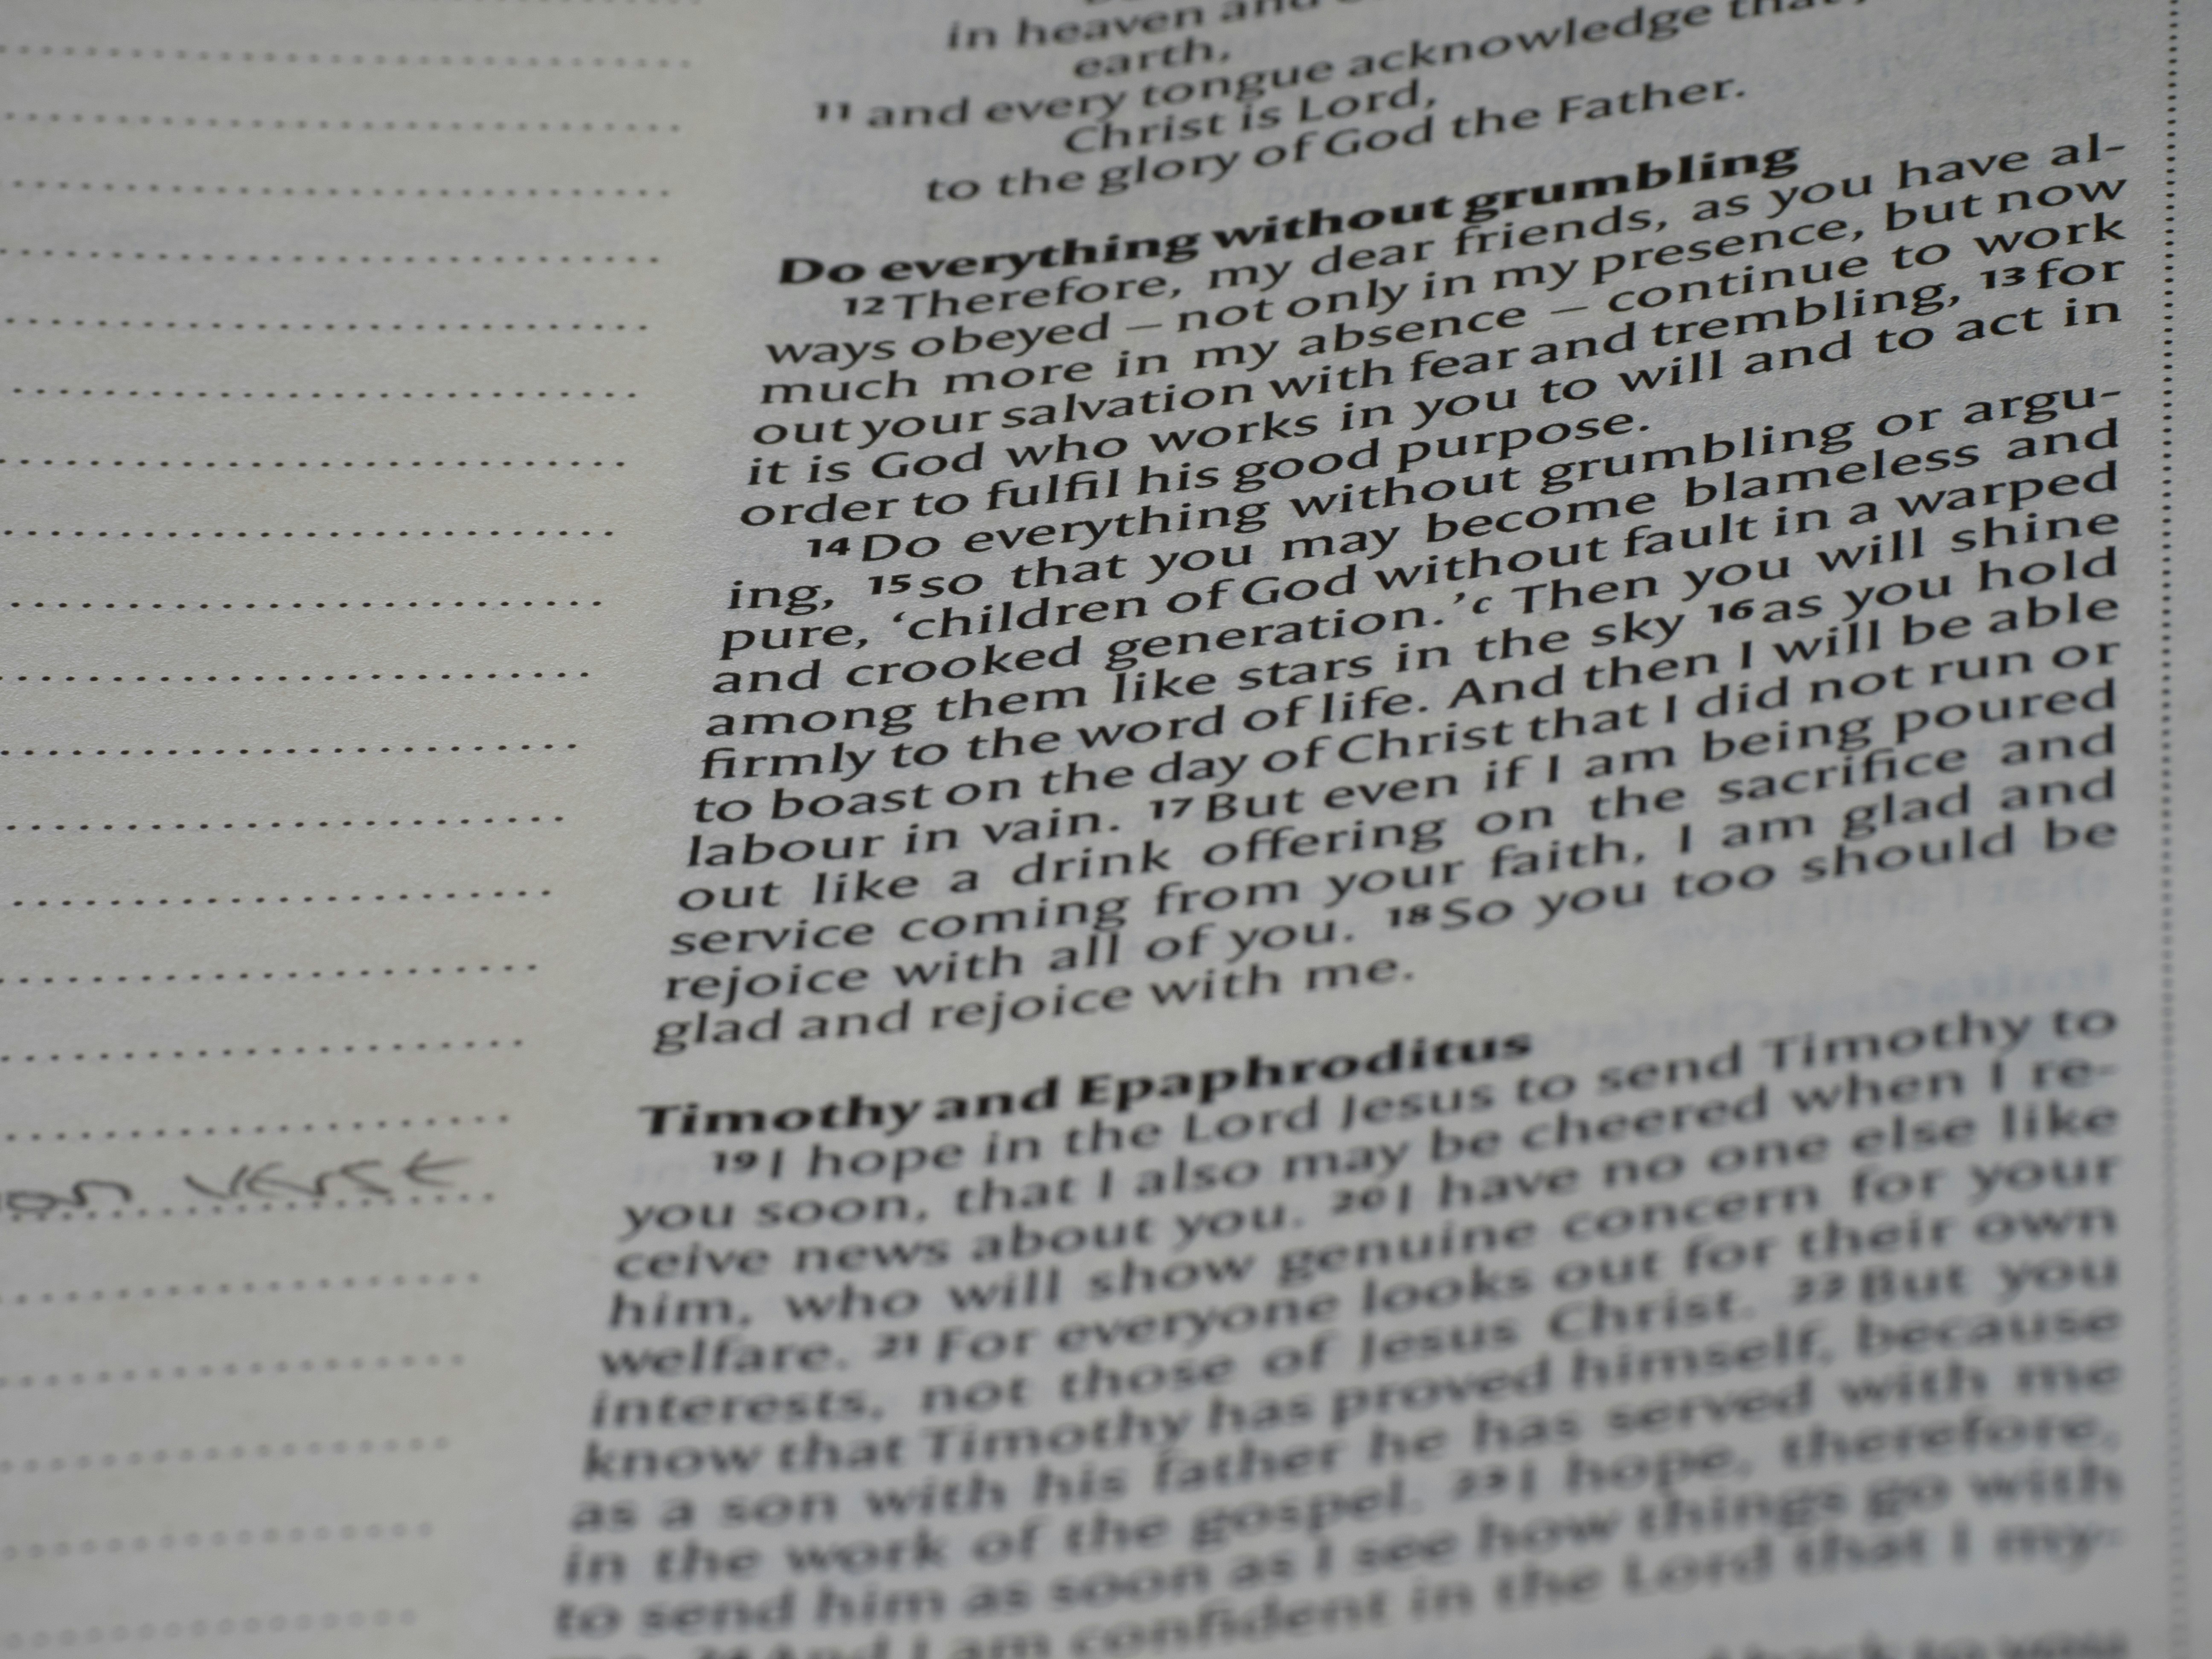 in heaven and
earth,
11 and every tongue acknowledge that
Christ is Lord,
to the glory of God the Father.
Do everything without grumbling
12 Therefore, my dear friends, as you have al-
ways obeyed – not only in my presence, but now
much more in my absence – continue to work
out your salvation with fear and trembling, 13 for
it is God who works in you to will and to act in
order to fulfil his good purpose.
14 Do everything without grumbling or argu-
ing, 15 so that you may become blameless and
pure, ‘children of God without fault in a warped
and crooked generation.’c Then you will shine
among them like stars in the sky 16 as you hold
firmly to the word of life. And then I will be able
to boast on the day of Christ that I did not run or
labour in vain. 17 But even if I am being poured
out like a drink offering on the sacrifice and
service coming from your faith, I am glad and
rejoice with all of you. 18 So you too should be
glad and rejoice with me.
Timothy and Epaphroditus
19 I hope in the Lord Jesus to send Timothy to
you soon, that I also may be cheered when I re-
ceive news about you. 20 I have no one else like
him, who will show genuine concern for your
welfare. 21 For everyone looks out for their own
interests, not those of Jesus Christ. 22 But you
know that Timothy has proved himself, because
as a son with his father he has served with me
in the work of the gospel. 23 I hope, therefore,
to send him as soon as I see how things go with
24 And I am confident in the Lord that I my-
back to you
verse